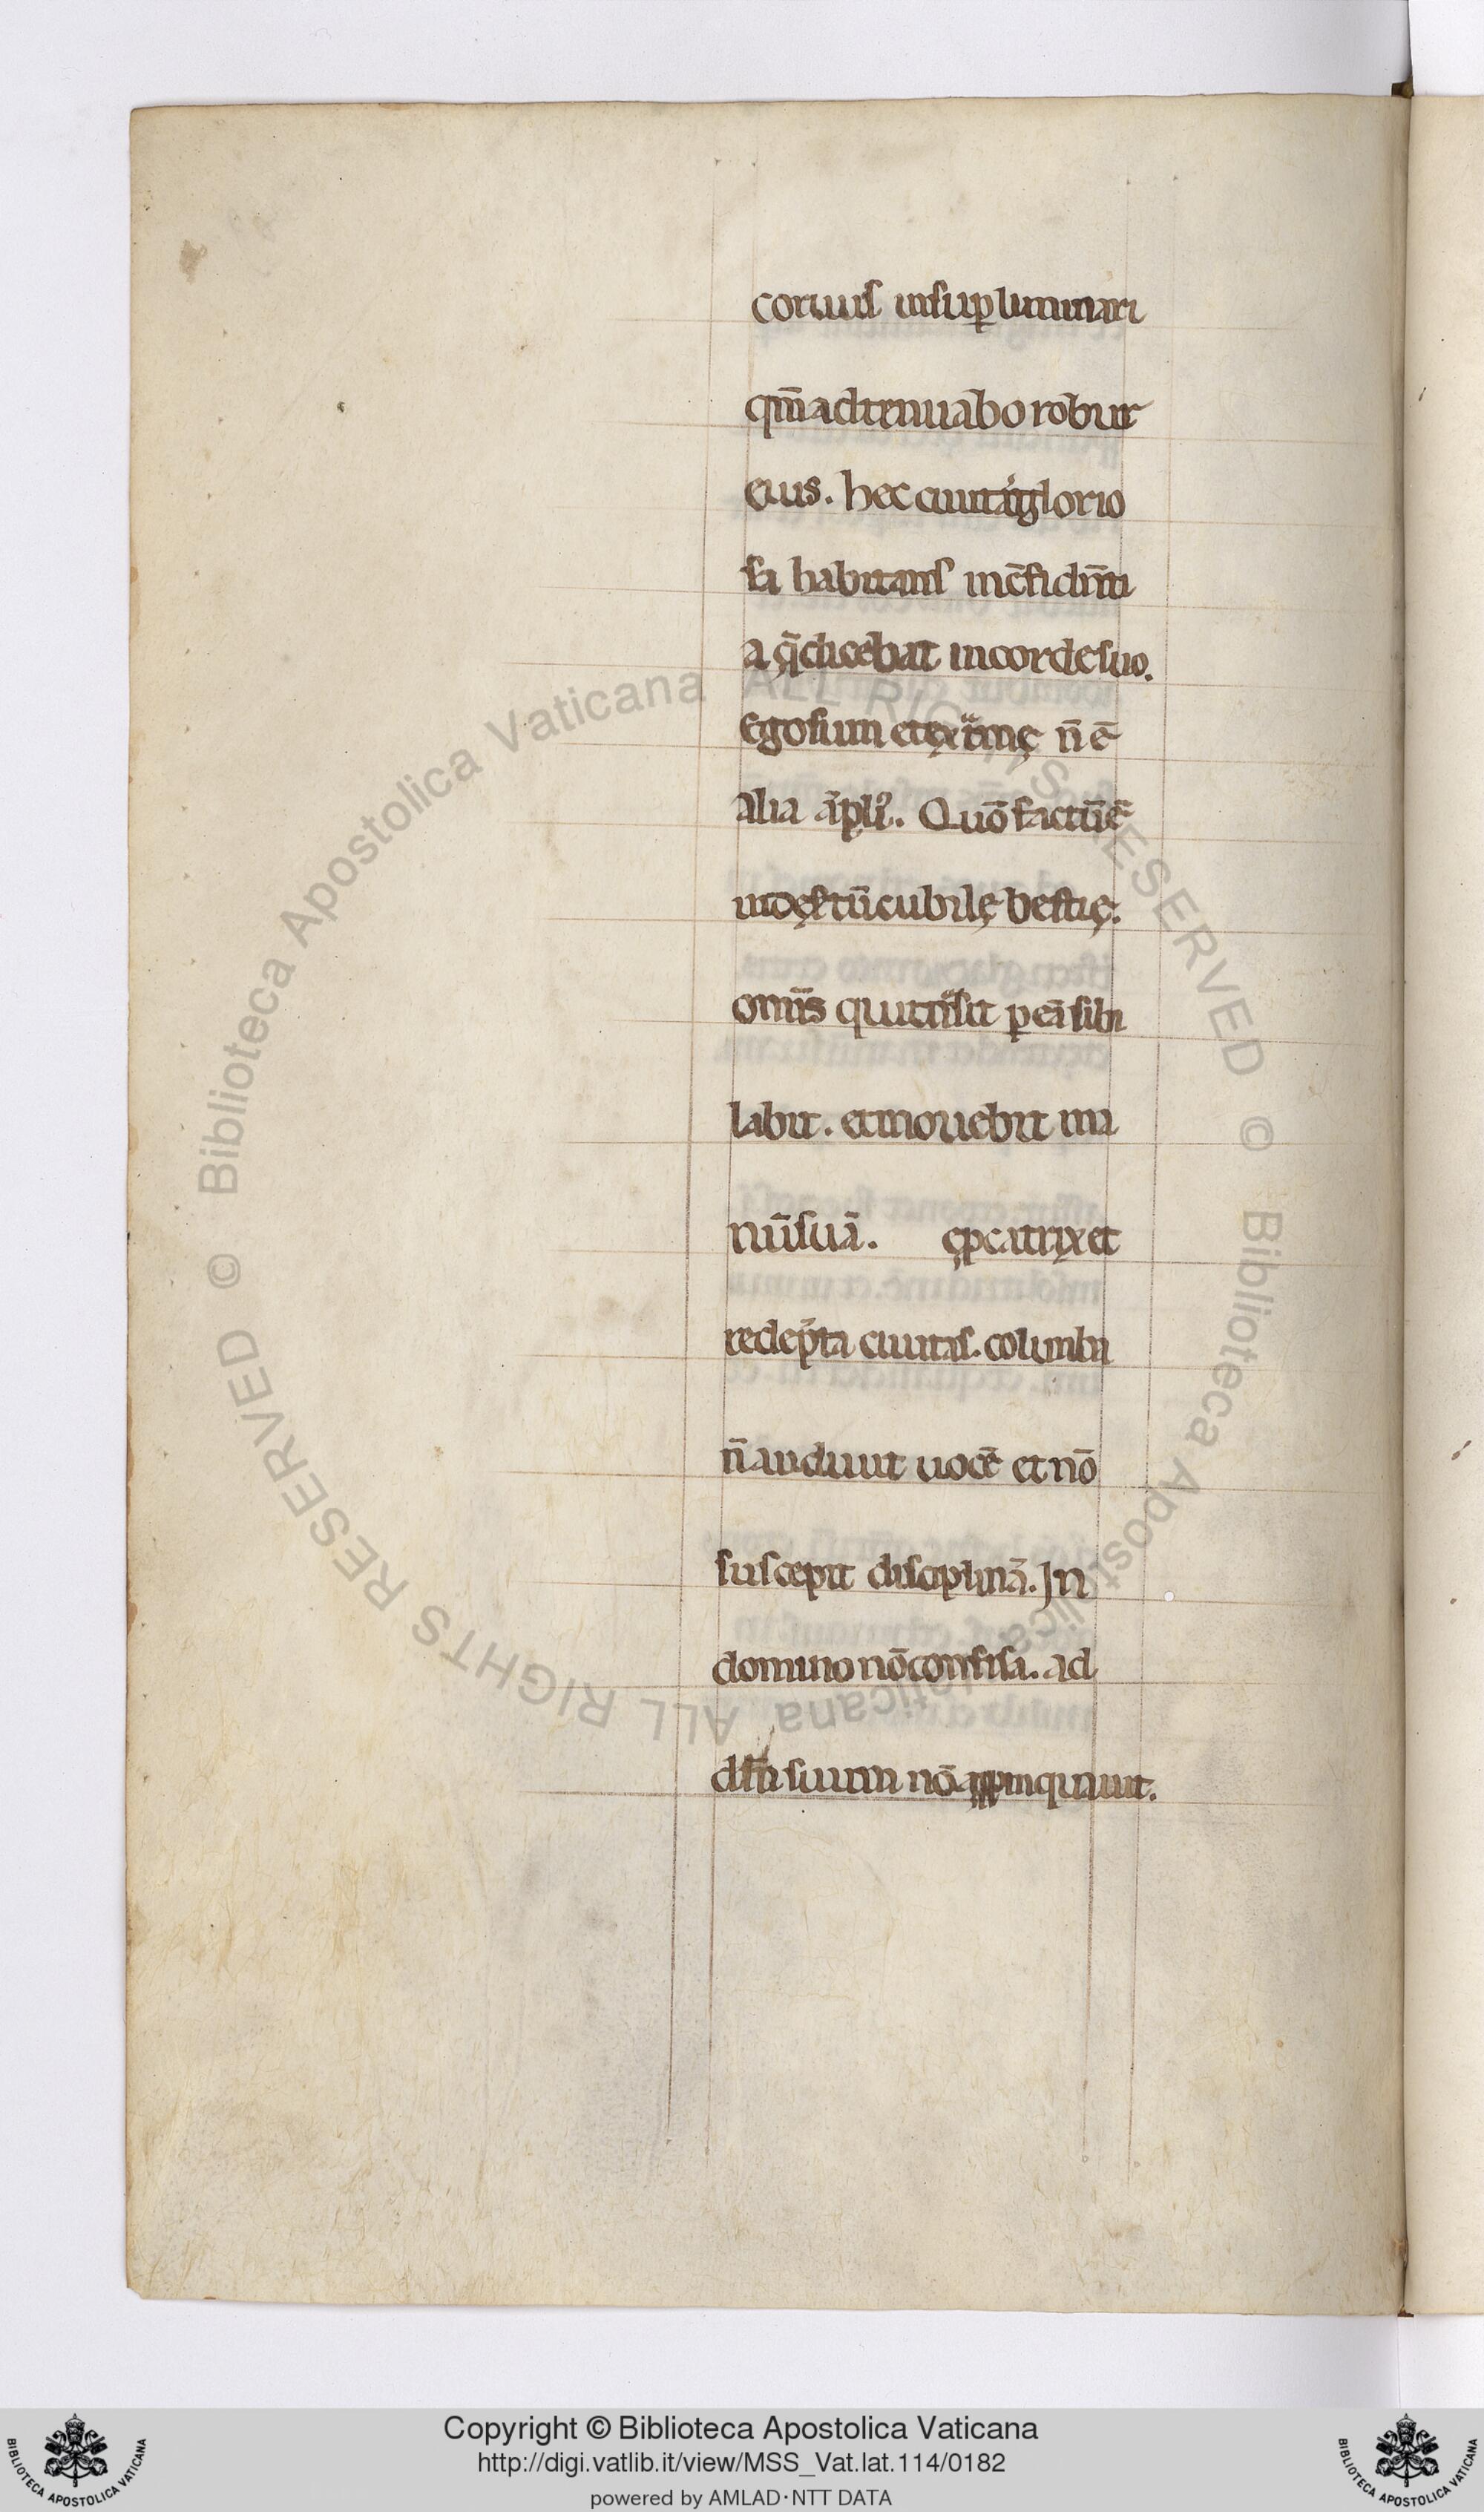 coruus insuꝑ luminari
qm̄ adtenuabo robur
eius. hec ciuitas glorio
sa habitans incfidnti
a q̄ dicebat in corde suo.
Ego sum et ext͛ mę n̄ ē
alia ampliꝰ. Quō factū ē
in desertū cubile bestię.
omīs qui tnsit ꝑ eā sibi
labit. et mouebit ma
nū suā. ꝓuocatrix et
redepta ciuitas. columba
n̄ audiuit uocē et nō
suscepit disciplinā. In
domino nō confisa. ad
dm̄ suum nō appinquauit.
© Biblioteca Apostolica Vaticana ALL RIGHTS RESERVED © Biblioteca Apostolica Vaticana ALL RIGHTS RESERVED
Copyright © Biblioteca Apostolica Vaticana
http://digi.vatlib.it/view/MSS_Vat.lat.114/0182
powered by AMLAD·NTT DATA
BIBLIOTECA APOSTOLICA VATICANA
BIBLIOTECA APOSTOLICA VATICANA